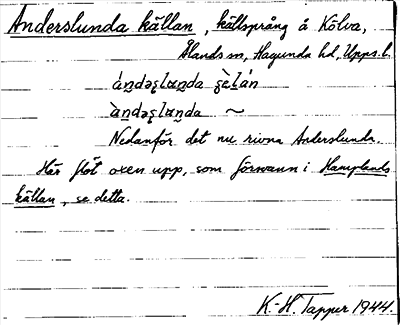 Anderslunda källan, källsprång å Kölva,
Ålands sn, Hagunda hd, Upps. l.
ándəșlu̠nda çèlán
àndəșlu̠nda ~
Nedanför det nu rivna Anderslunda.
Här flöt oxen upp, som försvann i Hamplands
källan, se detta.
K.-H. Tapper 1944.